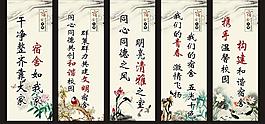 干净整齐靠大家
宿舍如我家
同心同德共建和谐校园
群策群力共建文明宿舍
同心同德之风
明亮清雅之室
我们的青春激情飞扬
我们的宿舍五光十色
携手温馨校园
构建和谐宿舍